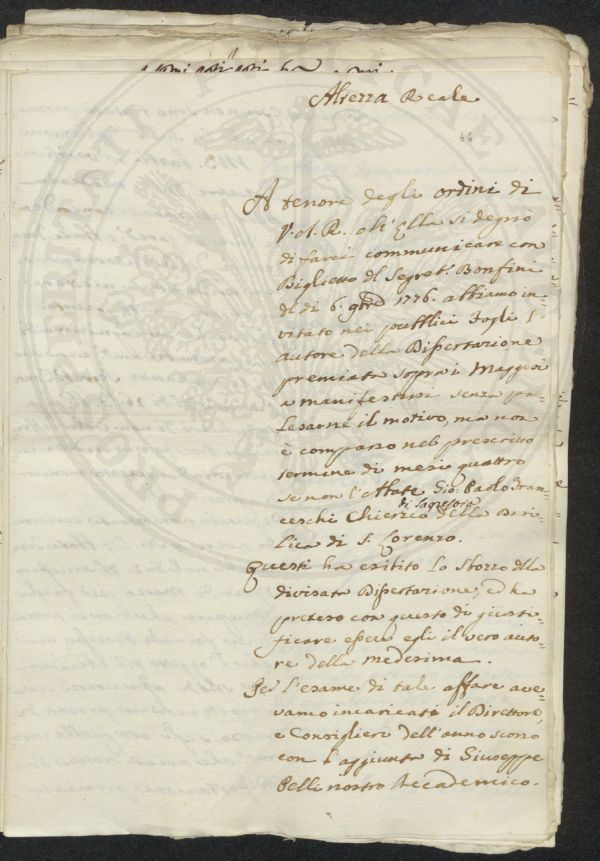 Altezza Reale
44
A tenore degli ordini di
V. A. R. ch'Ella si degnò
di farci communicare con
Biglietto del Segret.° Bonfini
de dì 6. 9bre 1776. abbiamo in-
vitato nei pubblici Fogli l'
autore della Dissertazione
premiata sopra i Maggesi
a manifestarsi senza pa-
lesarne il motivo, ma non
è comparso nel prescritto
termine di mesi quattro
se non l'Abate Gio: Paolo Fran-
ceschi Chierico di Sagrestia della Basi-
lica di S. Lorenzo.
Questi ha esibito lo sborzo della
divisata Dissertazione, ed ha
preteso con questo di giusti-
ficare essere egli il vero auto-
re della medesima.
Per l'esame di tale affare ave-
vamo incaricati il Direttore,
e Consiglieri dell'anno scorso
con l'aggiunta di Giuseppe
Pelli nostro Accademico.